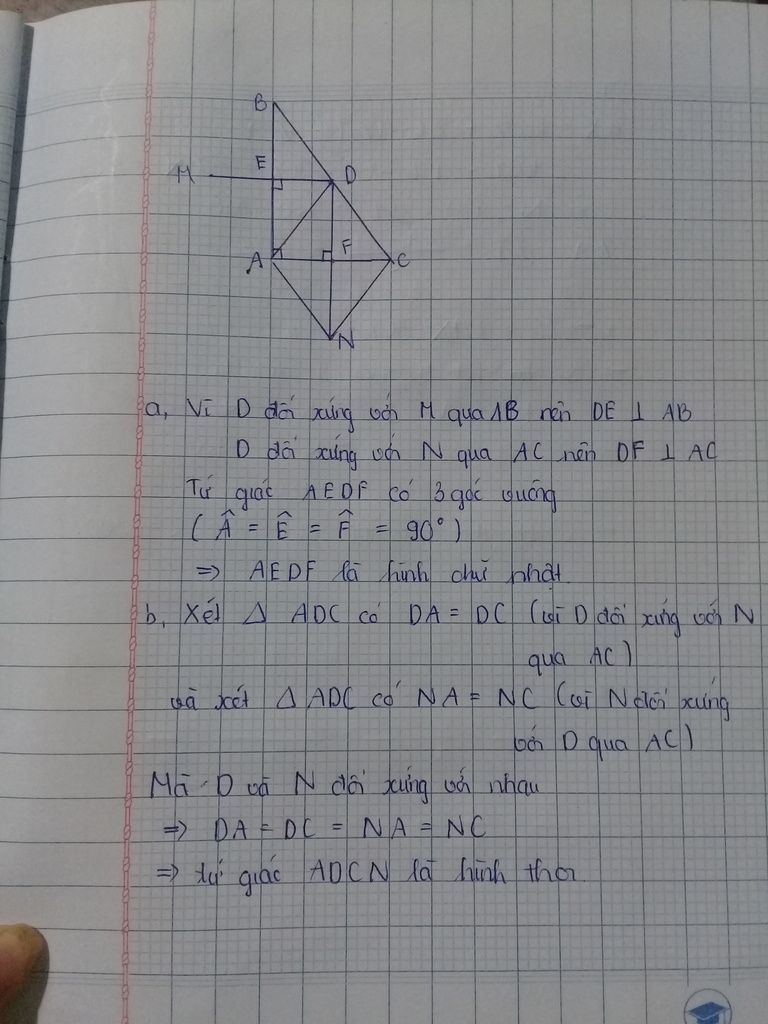 B
E
M
D
F
A
C
N
a, Vì D đối xứng với M qua AB nên DE ⊥ AB
D đối xứng với N qua AC nên DF ⊥ AC
Tứ giác AEDF có 3 góc vuông
( Â = Ê = F̂ = 90° )
=> AEDF là hình chữ nhật
b, Xét Δ ADC có DA = DC (vì D đối xứng với N
qua AC)
và xét Δ ADC có NA = NC (vì N đối xứng
với D qua AC)
Mà D và N đối xứng với nhau
=> DA = DC = NA = NC
=> tứ giác ADCN là hình thoi